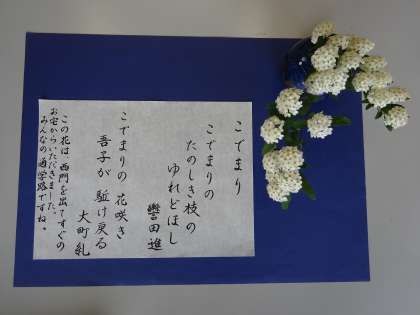 こでまり
こでまりの
たのしき枝の
ゆれどほし
轡田進
こでまりの 花咲き
吾子が 駈け戻る
大町糺
この花は 西門を出てすぐの
お宅からいただきました。
みんなの通学路ですね。